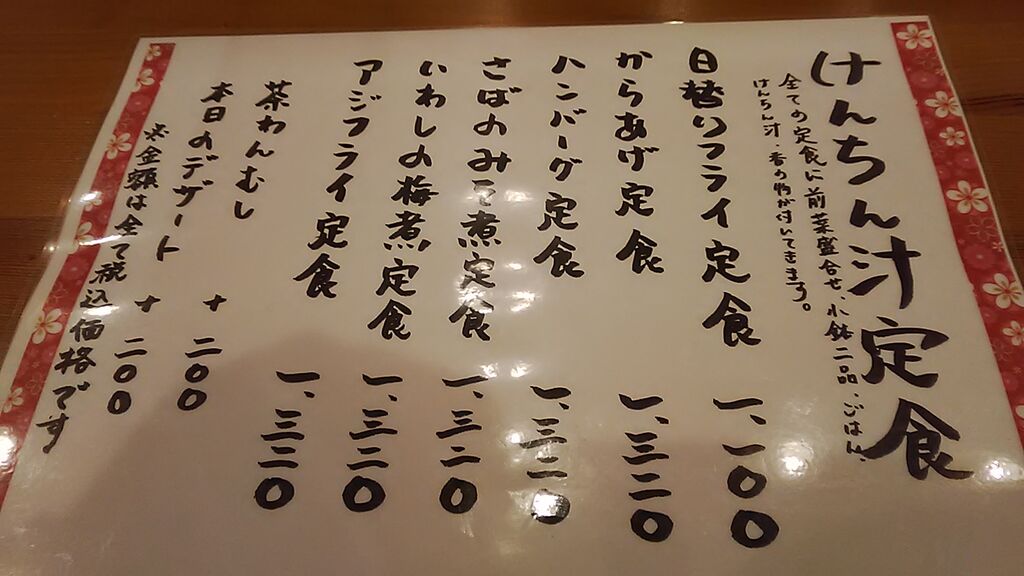 けんちん汁定食
全ての定食に前菜盛合せ、小鉢二品、ごはん、
けんちん汁、香の物が付いてきます。
日替りフライ定食 一、一〇〇
からあげ定食 一、三二〇
ハンバーグ定食 一、三二〇
さばのみそ煮定食 一、三二〇
いわしの梅煮定食 一、三二〇
アジフライ定食 一、三二〇
茶わんむし +二〇〇
本日のデザート +二〇〇
※金額は全て税込価格です